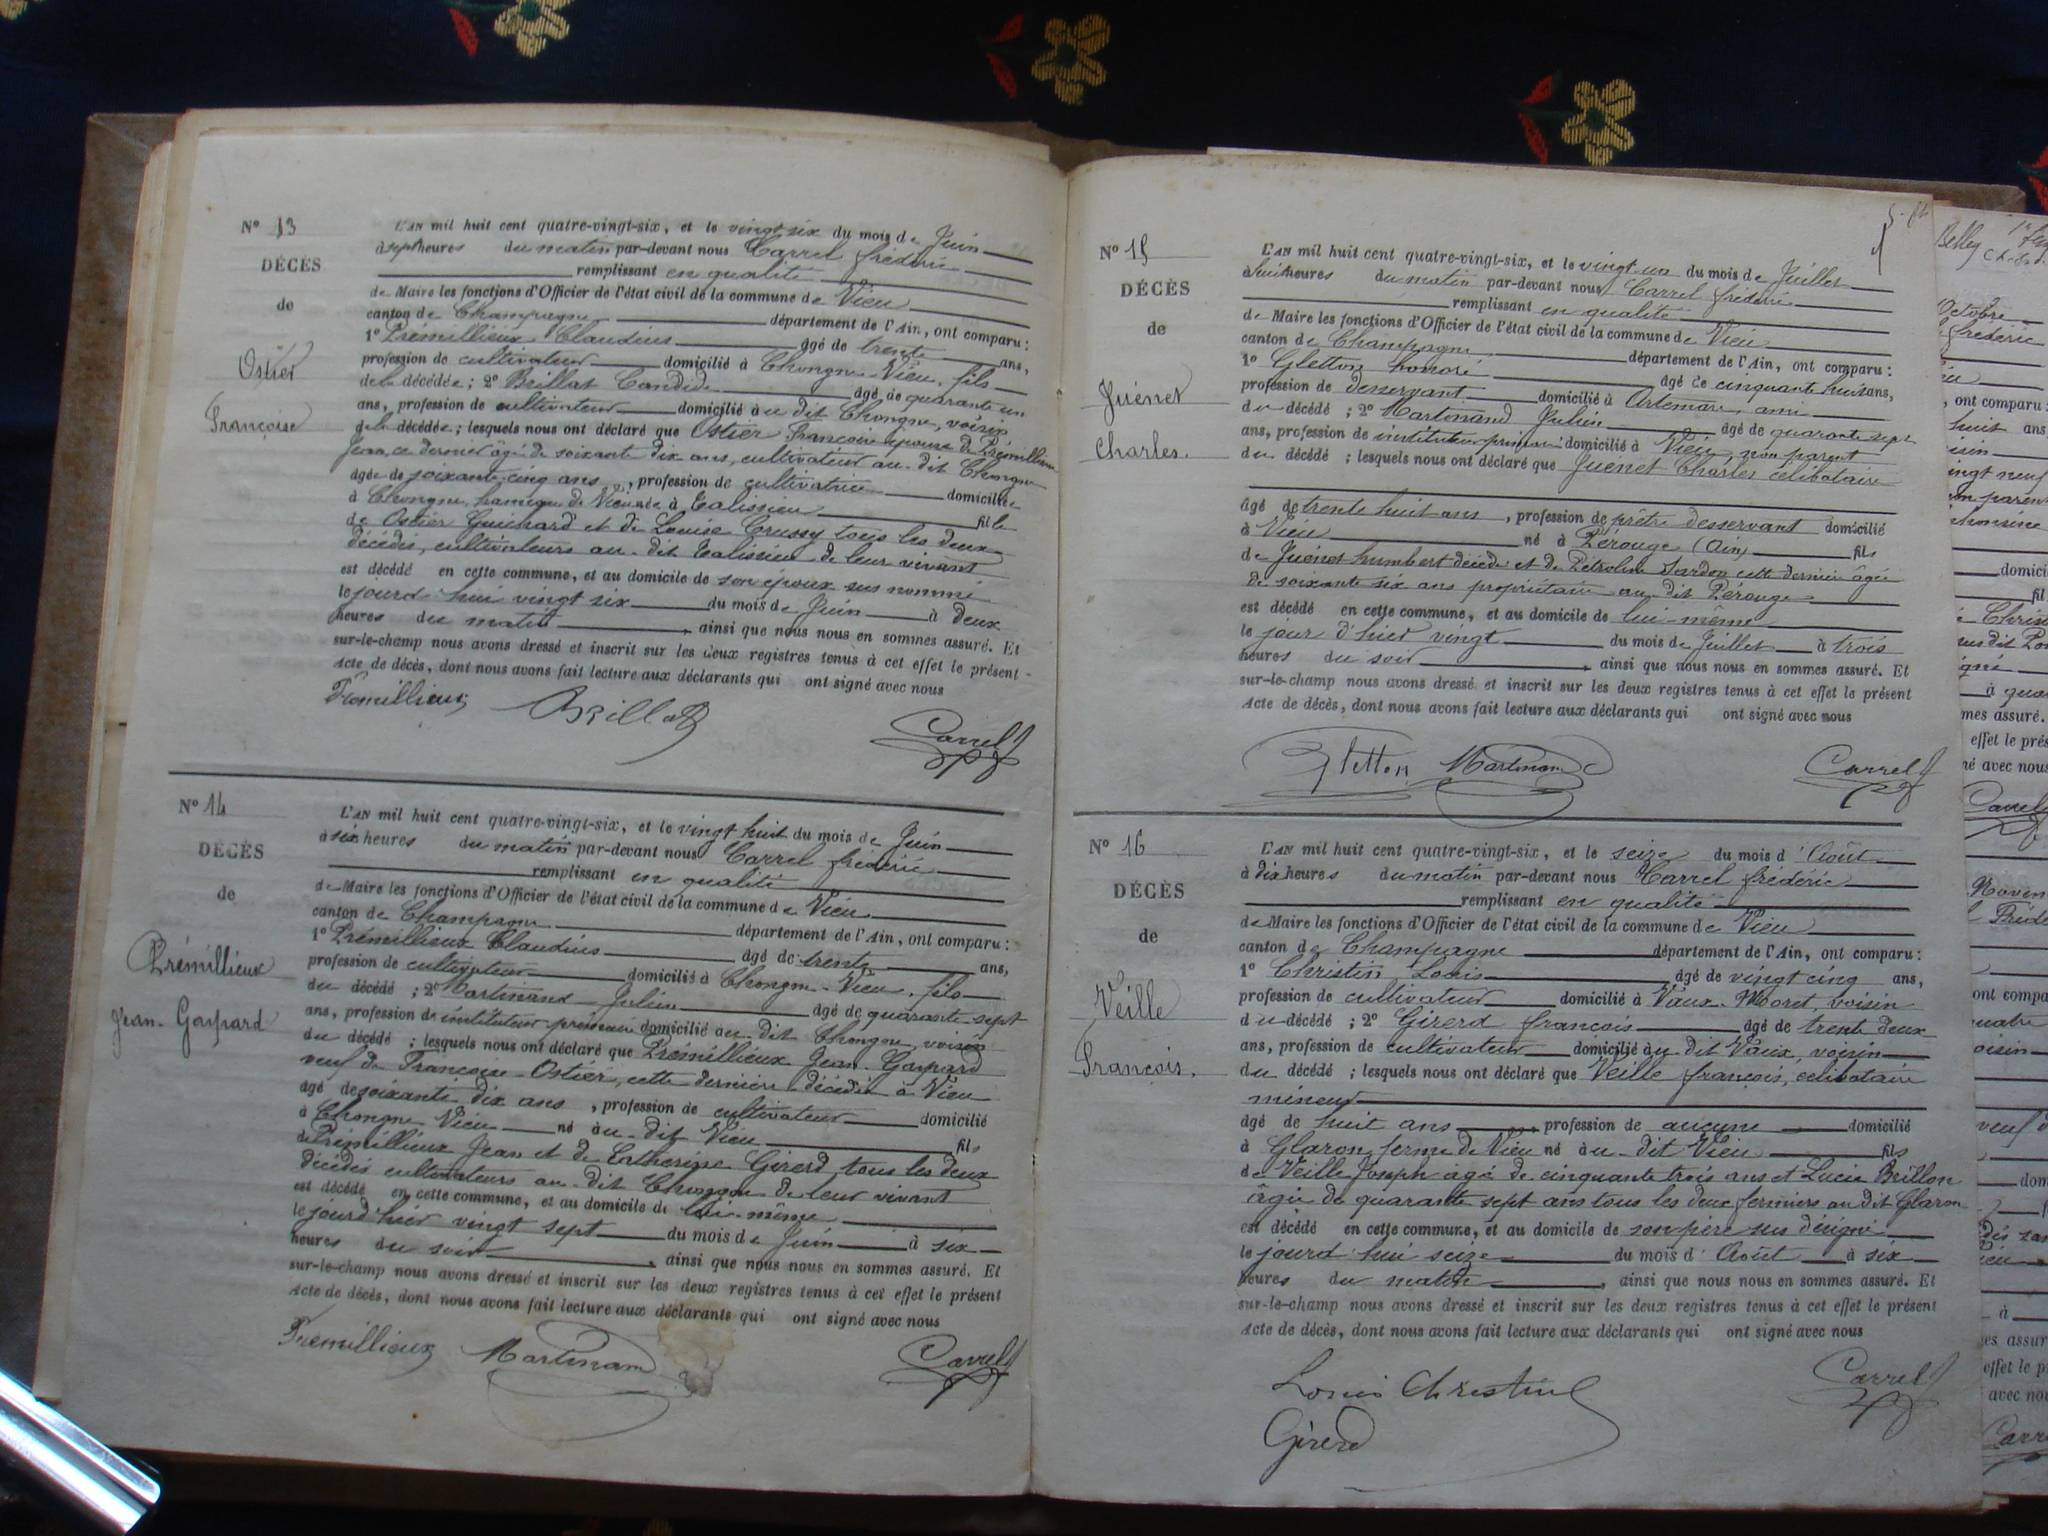 Nº 13
DÉCÈS
de
Ostier
Françoise
L'AN mil huit cent quatre-vingt-six, et le vingt six du mois de Juin
à sept heures du matin par-devant nous Carrel frédéric
remplissant en qualité
de Maire les fonctions d'Officier de l'état civil de la commune de Vieu
canton de Champagne département de l'Ain, ont comparu :
1º Prémillieux Claudius âgé de trente ans,
profession de cultivateur domicilié à Chongne Vieu, fils
de la décédée ; 2º Brillat Candide âgé de quarante un
ans, profession de cultivateur domicilié au dit Chongne, voisin
de la décédée ; lesquels nous ont déclaré que Ostier françoise épouse de Prémillieux
Jean, ce dernier âgé de soixante dix ans, cultivateur au dit Chongne
âgée de soixante-cinq ans, profession de cultivatrice domiciliée
à Chongne, hameau de Vieu née à Talissieu fille
de Ostier Guichard et de Louise Crussy tous les deux
décédés, cultivateurs au dit Talissieu de leur vivant
est décédé en cette commune, et au domicile de son époux sus nommé
le jourd'hui vingt six du mois de Juin à deux
heures du matin, ainsi que nous nous en sommes assuré. Et
sur-le-champ nous avons dressé et inscrit sur les deux registres tenus à cet effet le présent
Acte de décès, dont nous avons fait lecture aux déclarants qui ont signé avec nous
Premillieux Brillat
Carrel f
Nº 14
DÉCÈS
de
Prémillieux
Jean-Gaspard
L'AN mil huit cent quatre-vingt-six, et le vingt huit du mois de Juin
à six heures du matin par-devant nous Carrel frédéric
remplissant en qualité
de Maire les fonctions d'Officier de l'état civil de la commune de Vieu
canton de Champagne département de l'Ain, ont comparu :
1º Prémillieux Claudius âgé de trente ans,
profession de cultivateur domicilié à Chongne-Vieu, fils
du décédé ; 2º Martinand Julien âgé de quarante sept
ans, profession de instituteur primaire domicilié au dit Chongne, voisin
du décédé ; lesquels nous ont déclaré que Prémillieux Jean-Gaspard
veuf de Françoise Ostier, cette dernière décédée à Vieu
âgé de soixante dix ans, profession de cultivateur domicilié
à Chongne Vieu né au dit Vieu fils
de Prémillieux Jean et de Catherine Girerd tous les deux
décédés cultivateurs au dit Chongne de leur vivant
est décédé en cette commune, et au domicile de lui-même
le jourd'hier vingt sept du mois de Juin à six
heures du soir, ainsi que nous nous en sommes assuré. Et
sur-le-champ nous avons dressé et inscrit sur les deux registres tenus à cet effet le présent
Acte de décès, dont nous avons fait lecture aux déclarants qui ont signé avec nous
Premillieux Martinand Carrel f
Nº 15
DÉCÈS
de
Juénet
Charles.
L'AN mil huit cent quatre-vingt-six, et le vingt-un du mois de Juillet
à huit heures du matin par-devant nous Carrel frédéric
remplissant en qualité
de Maire les fonctions d'Officier de l'état civil de la commune de Vieu
canton de Champagne département de l'Ain, ont comparu :
1º Gletton honoré âgé de cinquante huit ans,
profession de desservant domicilié à Artemare, ami
du décédé ; 2º Martinand Julien âgé de quarante sept
ans, profession de instituteur primaire domicilié à Vieu, non parent
du décédé ; lesquels nous ont déclaré que Juénet Charles célibataire
âgé de trente huit ans, profession de prêtre desservant domicilié
à Vieu né à Pérouge (Ain) fils
de Juénet humbert décédé et de Pétroline Sardon cette dernière âgée
de soixante six ans propriétaire au dit Pérouge
est décédé en cette commune, et au domicile de lui-même
le jour d'hier vingt du mois de Juillet à trois
heures du soir, ainsi que nous nous en sommes assuré. Et
sur-le-champ nous avons dressé et inscrit sur les deux registres tenus à cet effet le présent
Acte de décès, dont nous avons fait lecture aux déclarants qui ont signé avec nous
Gletton Martinand Carrel f
Nº 16
DÉCÈS
de
Veille
François.
L'AN mil huit cent quatre-vingt-six, et le seize du mois d'Août
à dix heures du matin par-devant nous Carrel frédéric
remplissant en qualité
de Maire les fonctions d'Officier de l'état civil de la commune de Vieu
canton de Champagne département de l'Ain, ont comparu :
1º Christin Louis âgé de vingt cinq ans,
profession de cultivateur domicilié à Vaux-Moret, voisin
du décédé ; 2º Girerd françois âgé de trente deux
ans, profession de cultivateur domicilié au dit Vaux, voisin
du décédé ; lesquels nous ont déclaré que Veille françois, célibataire
mineur
âgé de huit ans, profession de aucune domicilié
à Glaron ferme de Vieu né au dit Vieu fils
de Veille Joseph âgé de cinquante trois ans et Lucie Brillon
âgée de quarante sept ans tous les deux fermiers au dit Glaron
est décédé en cette commune, et au domicile de son père sus désigné
le jourd'hui seize du mois d'Août à six
heures du matin, ainsi que nous nous en sommes assuré. Et
sur-le-champ nous avons dressé et inscrit sur les deux registres tenus à cet effet le présent
Acte de décès, dont nous avons fait lecture aux déclarants qui ont signé avec nous
Louis Christin Carrel f
Girerd